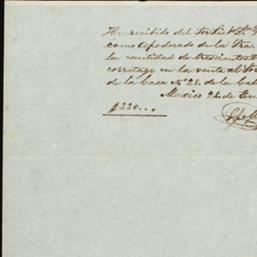 He recibido del Sor Lic
como Apoderado de la Sra.
la cantidad de trescientos
corretage en la venta al Sor
de la Casa Nº 28. de la Cal
Mexico 24 de En
$330...